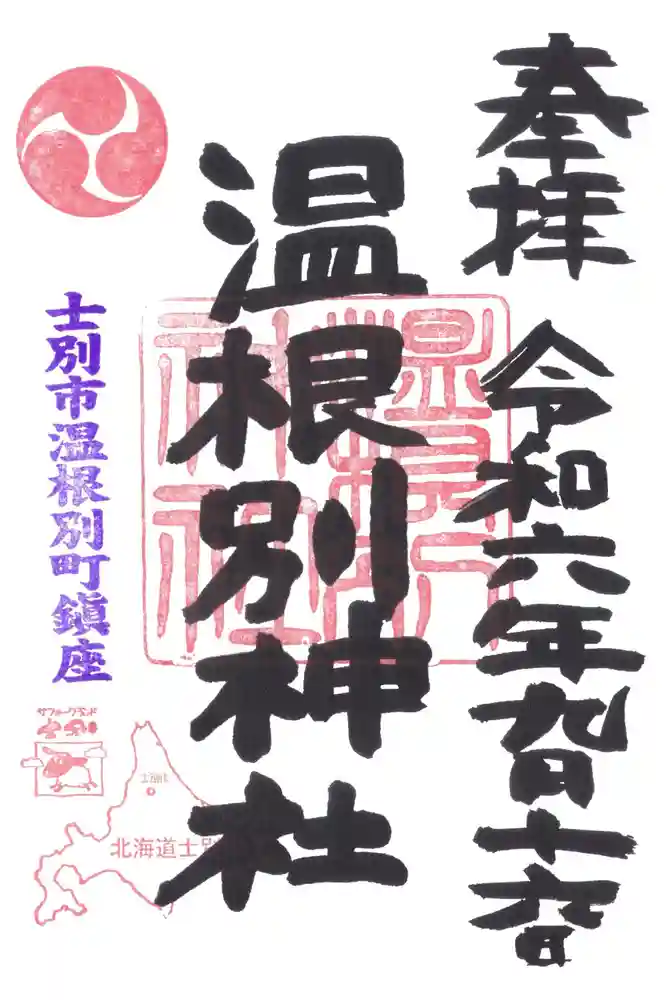 奉拝
令和六年九月十六日
温根別神社
士別市温根別町鎮座
サフォークランド
北海道士別